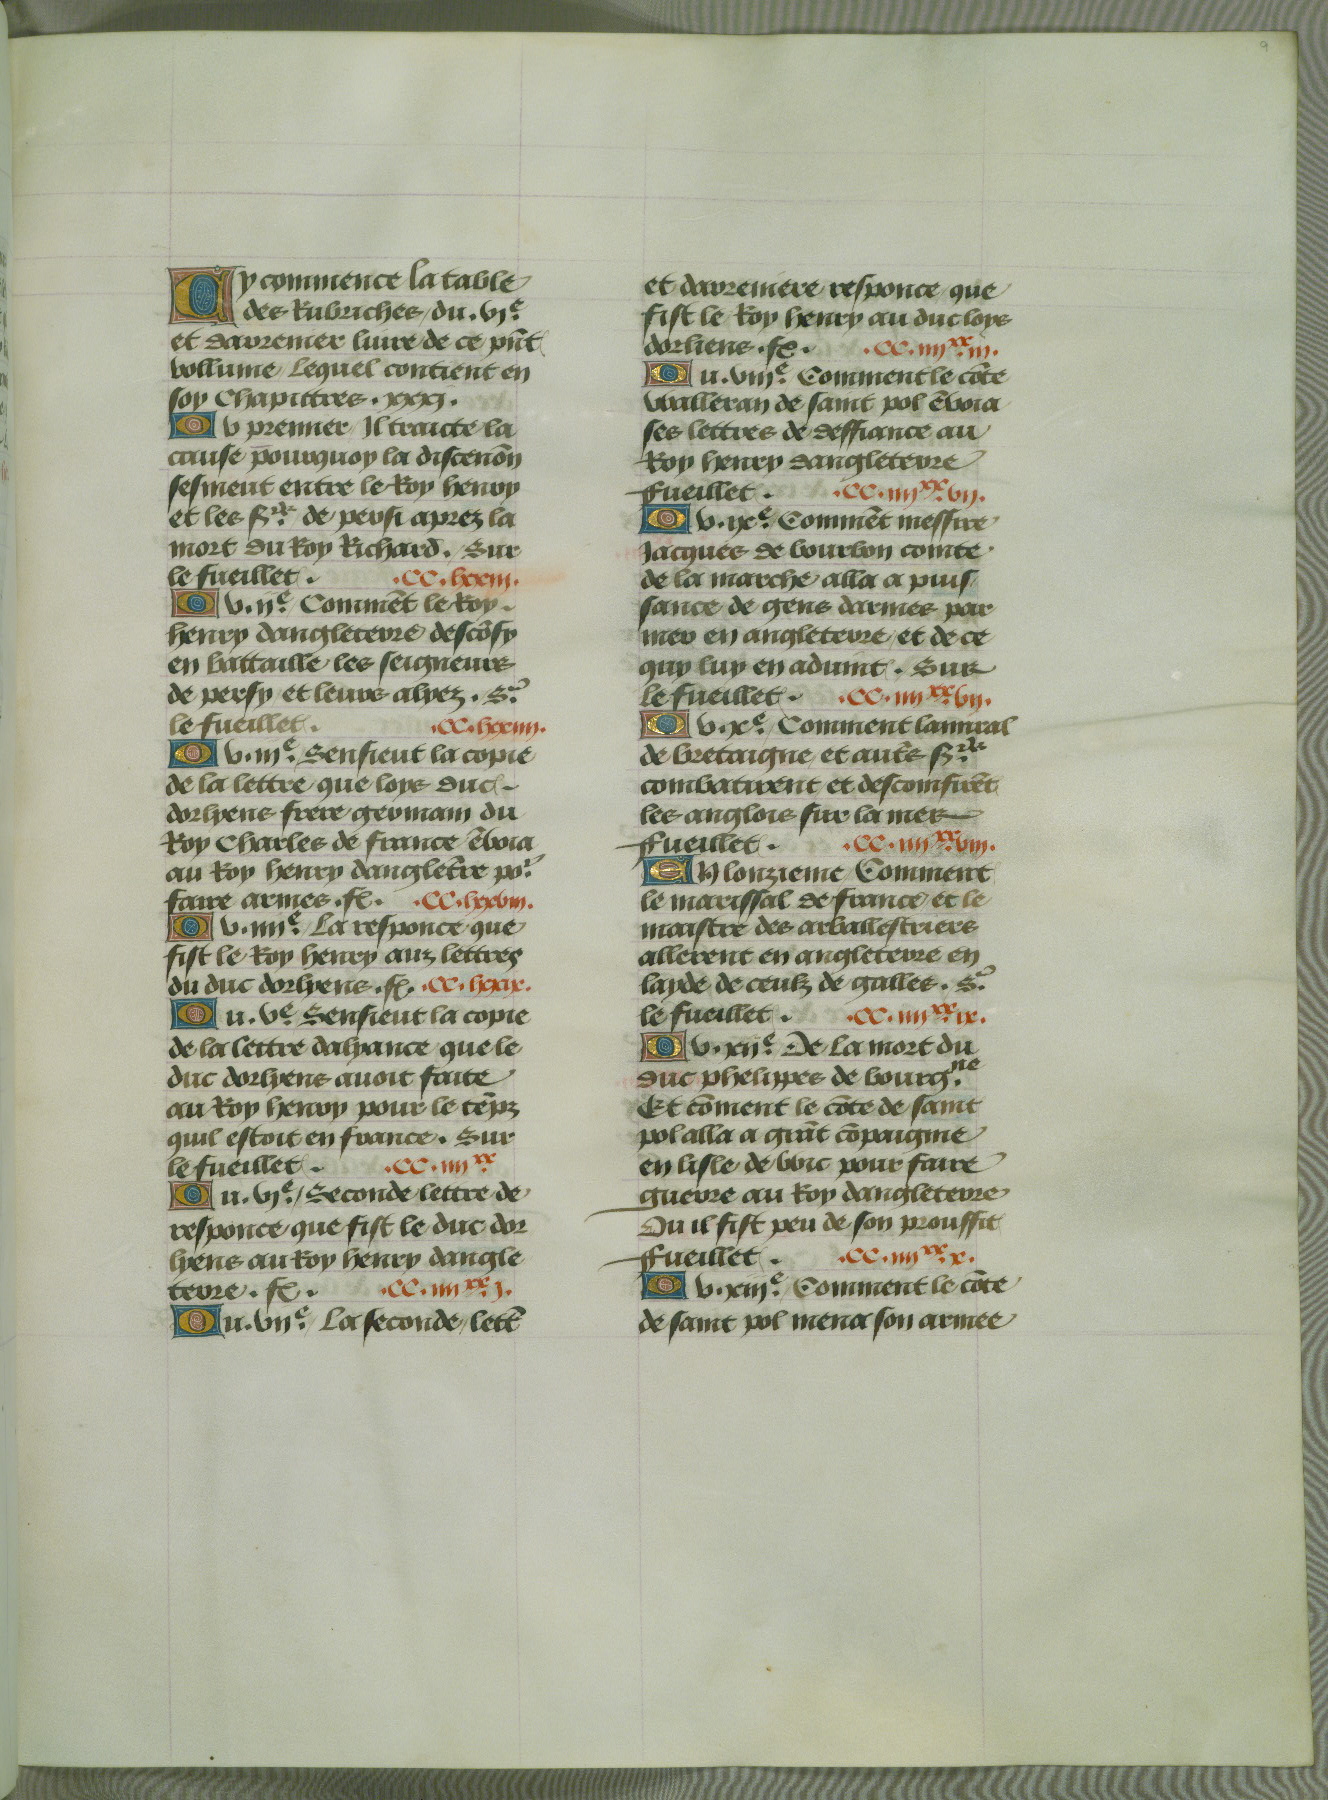 9
Cy commence la table
des Rubriches du .vi.e
et darrenier liure de ce pñt
vollume Lequel contient en
soy Chapittres .xxxi.
Du premier Il traicte la
cause pourquoy la discencõn
sesmeut entre le Roy henry
et les srs. de persi aprez la
mort du Roy Richard. Sur
le fueillet . .CC.lxxiii.
Du .ii.e Commẽt le Roy
henry dangleterre descõfy
en battaille les seigneurs
de persy et leurs alyez. Sr.
le fueillet . .CC.lxxiiii.
Du .iii.e Sensieut la copie
de la lettre que loys duc
dorlyens frere germain du
Roy Charles de france ẽvoia
au Roy henry dangletr̃e por.
faire armes. fe. .CC.lxxviii.
Du .iiii.e La responce que
fist le Roy henry aux lettres
du duc dorlyens. fe. .CC.lxxix.
Du .v.e Sensieut la copie
de la lettre dalyance que le
duc dorlyens auoit faite
au Roy henry pour le tẽpz
quil estoit en france. Sur
le fueillet . .CC.iiiixx
Du .vi.e Seconde lettre de
responce que fist le duc dor
lyens au Roy henry dangle
terre. fe. .CC.iiiixx.i.
Du .vii.e La seconde lettr̃
et darreniere responce que
fist le Roy henry au duc loys
dorliens. fe. .CC.iiiixx.iii.
Du .viii.e Comment le cõte
Walleran de saint pol ẽvoia
ses lettres de deffiance au
Roy henry dangleterre
ffueillet . .CC.iiiixx.vii.
Du .ix.e Commẽt messire
Jacques de bourbon comte
de la marche alla a puis
sance de gens darmes par
mer en angleterre et de ce
quy luy en aduint. Sur
le fueillet . .CC.iiiixx.vii.
Du .x.e Comment lamiral
de bretaigne et autr̃s srs.
combatirent et desconfirẽt
les anglois sur la mer
ffueillet . .CC.iiiixx.viii.
En lonzieme Comment
le marissal de france et le
maistre des arballestriers
allerent en angleterre en
layde de ceulz de galles. Sr.
le fueillet . .CC.iiiixx.ix.
Du .xii.e De la mort du
duc phelippes de bourg.ne
Et cõment le cõte de saint
pol alla a grãt cõpaignie
en lisle de voic pour faire
guerre au Roy dangleterre
Ou il fist peu de son prouffit
ffueillet . .CC.iiiixx.x.
Du .xiii.e Comment le cõte
de saint pol mena son armee